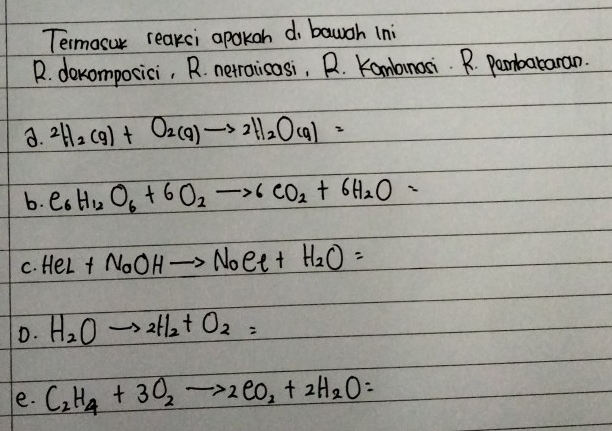 Termasuk reakci apakah di bawah ini
R. dekomposici, R. netralisasi, R. Kombinasi. R. pembakaran.
a. 2H₂(g) + O₂(g) → 2H₂O(g) =
b. C₆H₁₂O₆ + 6O₂ → 6CO₂ + 6H₂O =
c. HCL + NaOH → NaCl + H₂O =
D. H₂O → 2H₂ + O₂ =
e. C₂H₄ + 3O₂ → 2CO₂ + 2H₂O =